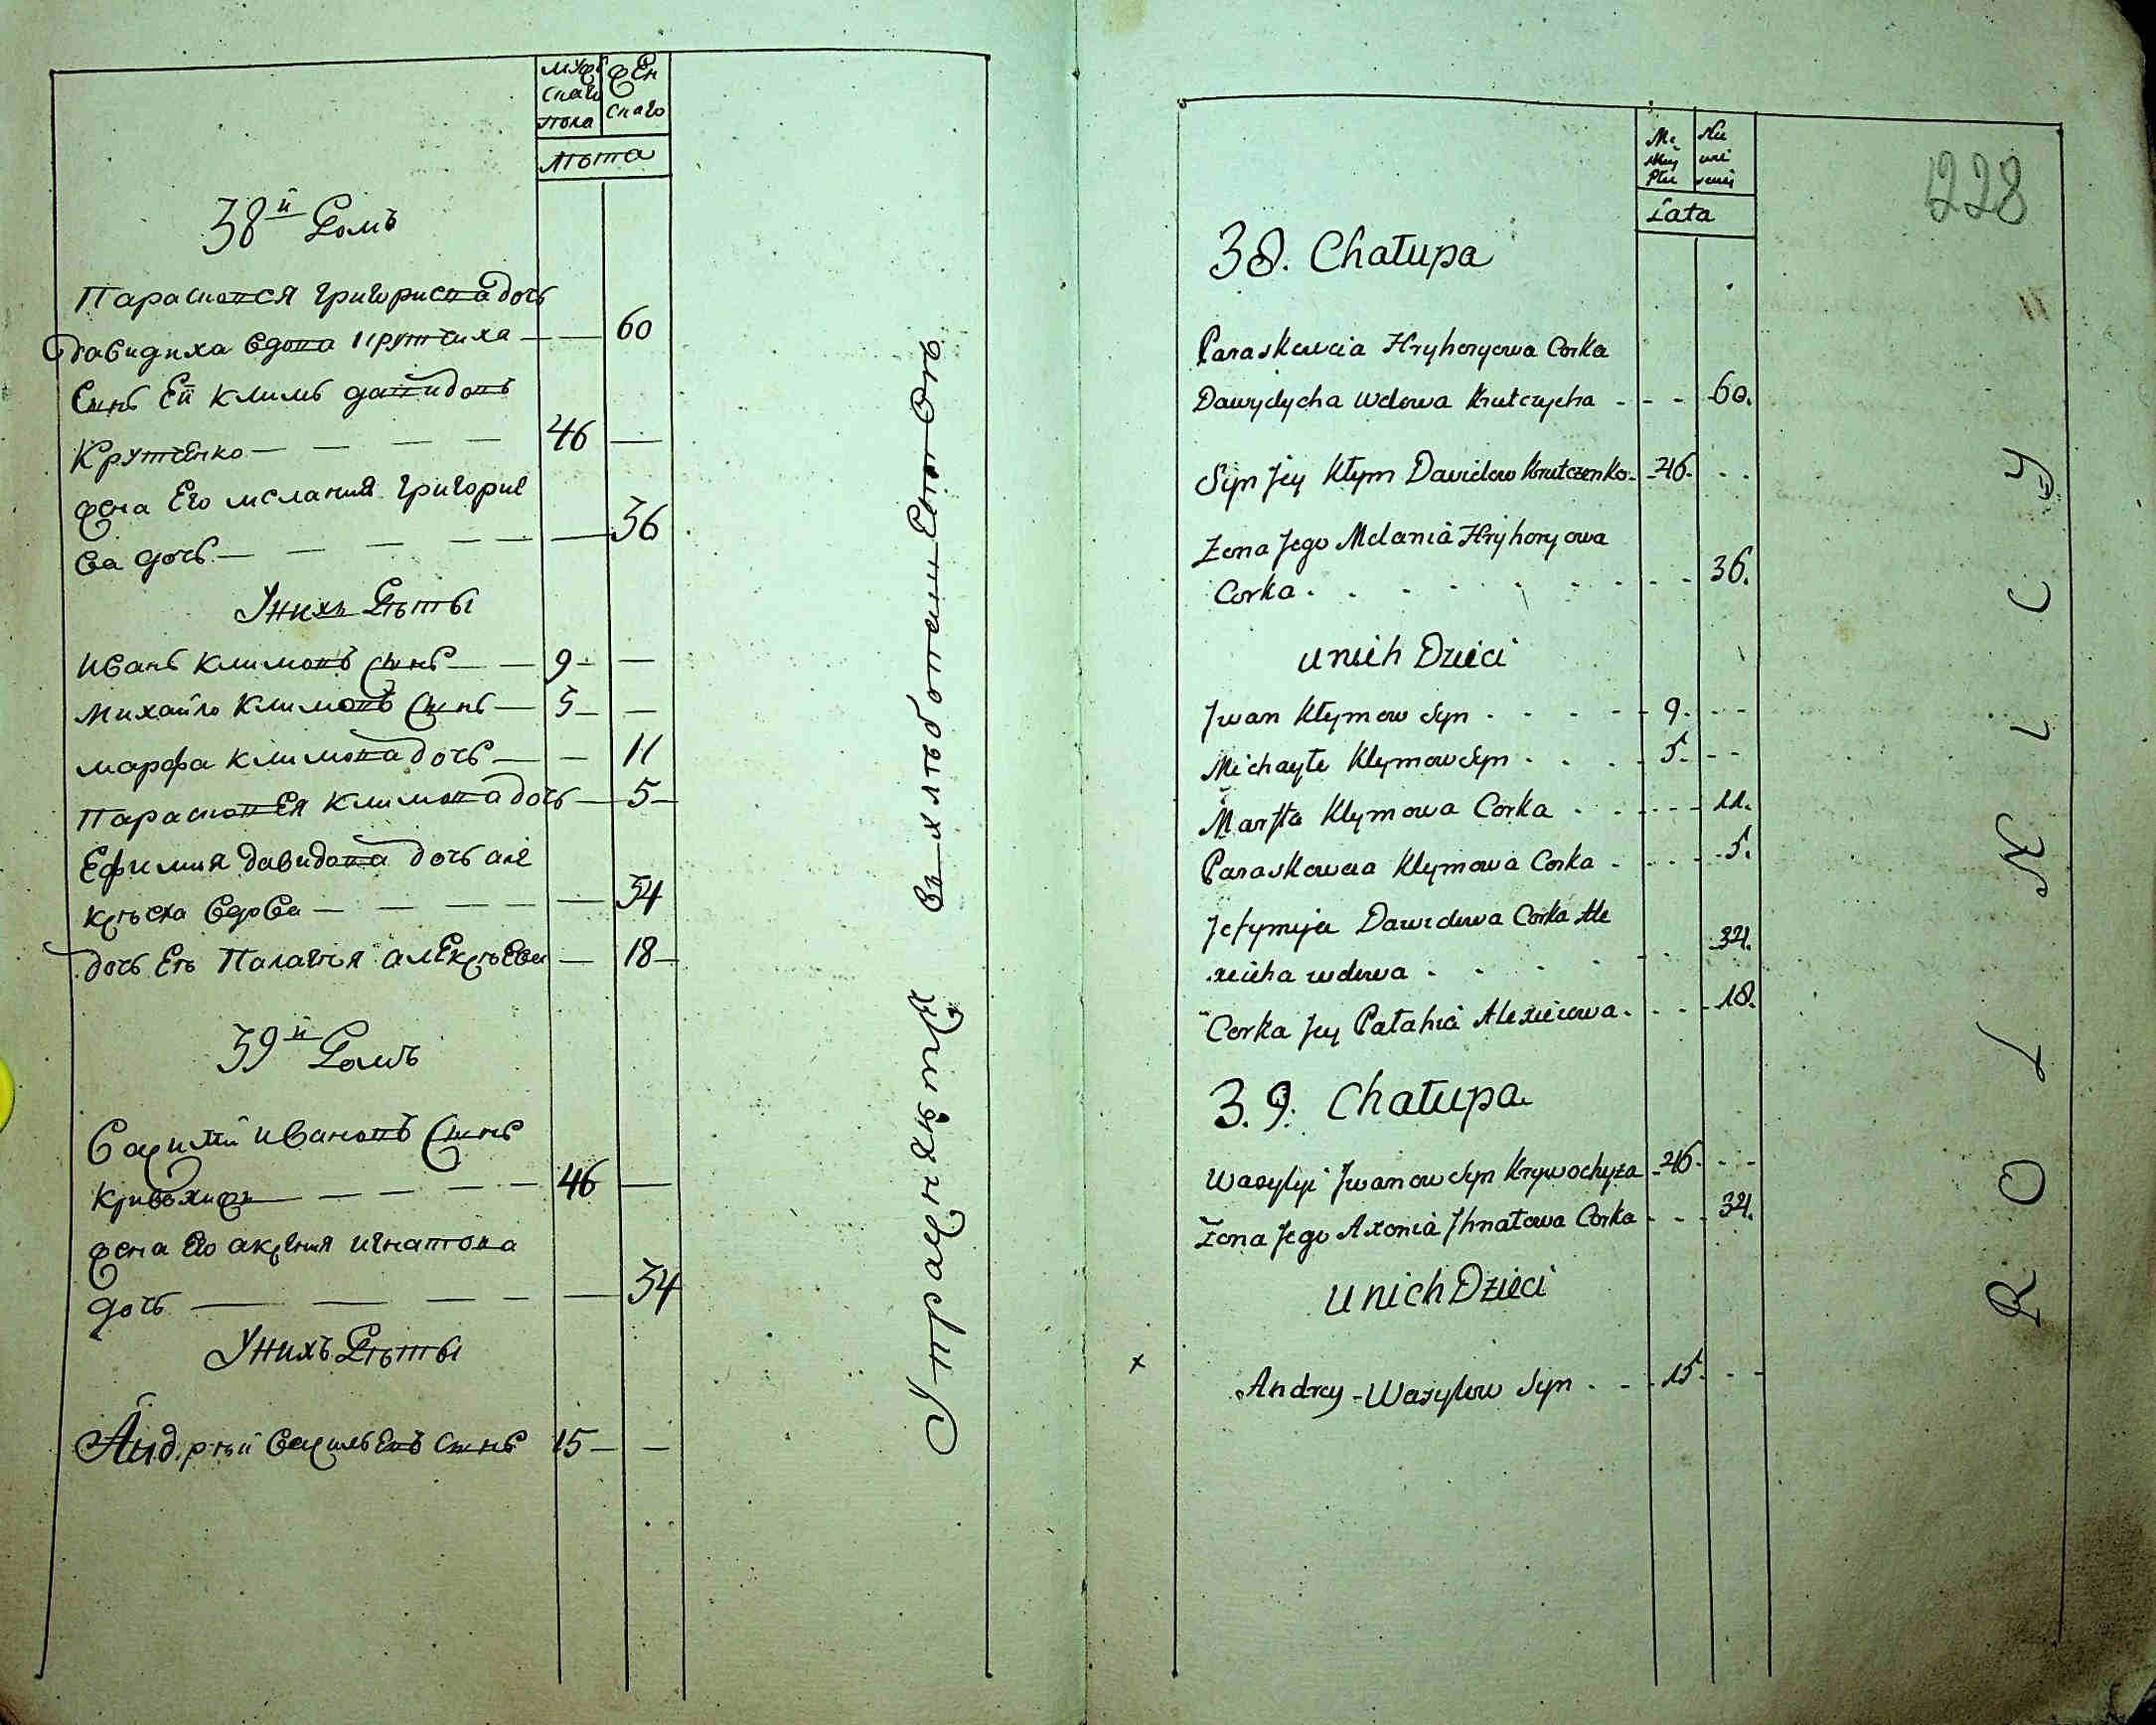 мужскаго пола
женскаго
лѣта
38й Домъ
Параскопея григориева дочь
Давидиха вдова Крутчиха — — 60
Сынъ Ей климъ давидовъ
Крутченко — — — — 46 —
жена Его мелания григорие
ва дочь — — — — — — 36
У них Дѣты
иванъ климовъ Сынъ — — 9 — —
михайло климовъ Сынъ — 5 — —
марфа климова дочь — — 11
Парасковея климова дочь — 5 —
Ефимия давидова дочь але
ксѣеха вдова — — — — — 34
дочь Еѣ Палагия алексѣева — 18 —
39й Домъ
Василий ивановъ Сынъ
кривохижа — — — — — 46 —
жена Его аксения игнатова
дочь — — — — — 34
У нихъ Дѣты
Андрѣй васильевъ Сынъ 15 — —
Упражняютця в хлѣбопашество
Męskiey Płci
Niewieściey
Lata
228
38. Chałupa
Paraskewia Hryhoryowa Corka
Dawydycha wdowa Krutczycha - - - 60.
Syn Jey Kłym Davidow Krutczenko. - 46. - -
Zona Jego Melania Hryhoryowa
Corka . . . . . . . - - 36.
u nich Dzieci
Jwan Kłymow Syn . . . . - 9. - -
Michayło Klymow Syn . . . - 5. - -
Marfta Klymowa Corka . . - - - 11.
Paraskewia Klymowa Corka . - - - 5.
Jefymija Dawidowa Corka Ale
xeicha wdowa . . . . - . 34.
Corka Jey Pałahia Alexieiowa . . . - 18.
39. Chałupa
Wasylyi Jwanow Syn Krywochyża - 46. - -
Żona Jego Axenia Jhnatowa Corka - - - 34.
u nich Dzieci
x Andrey - Wasylow Syn . - - 15. - -
ROLNICY